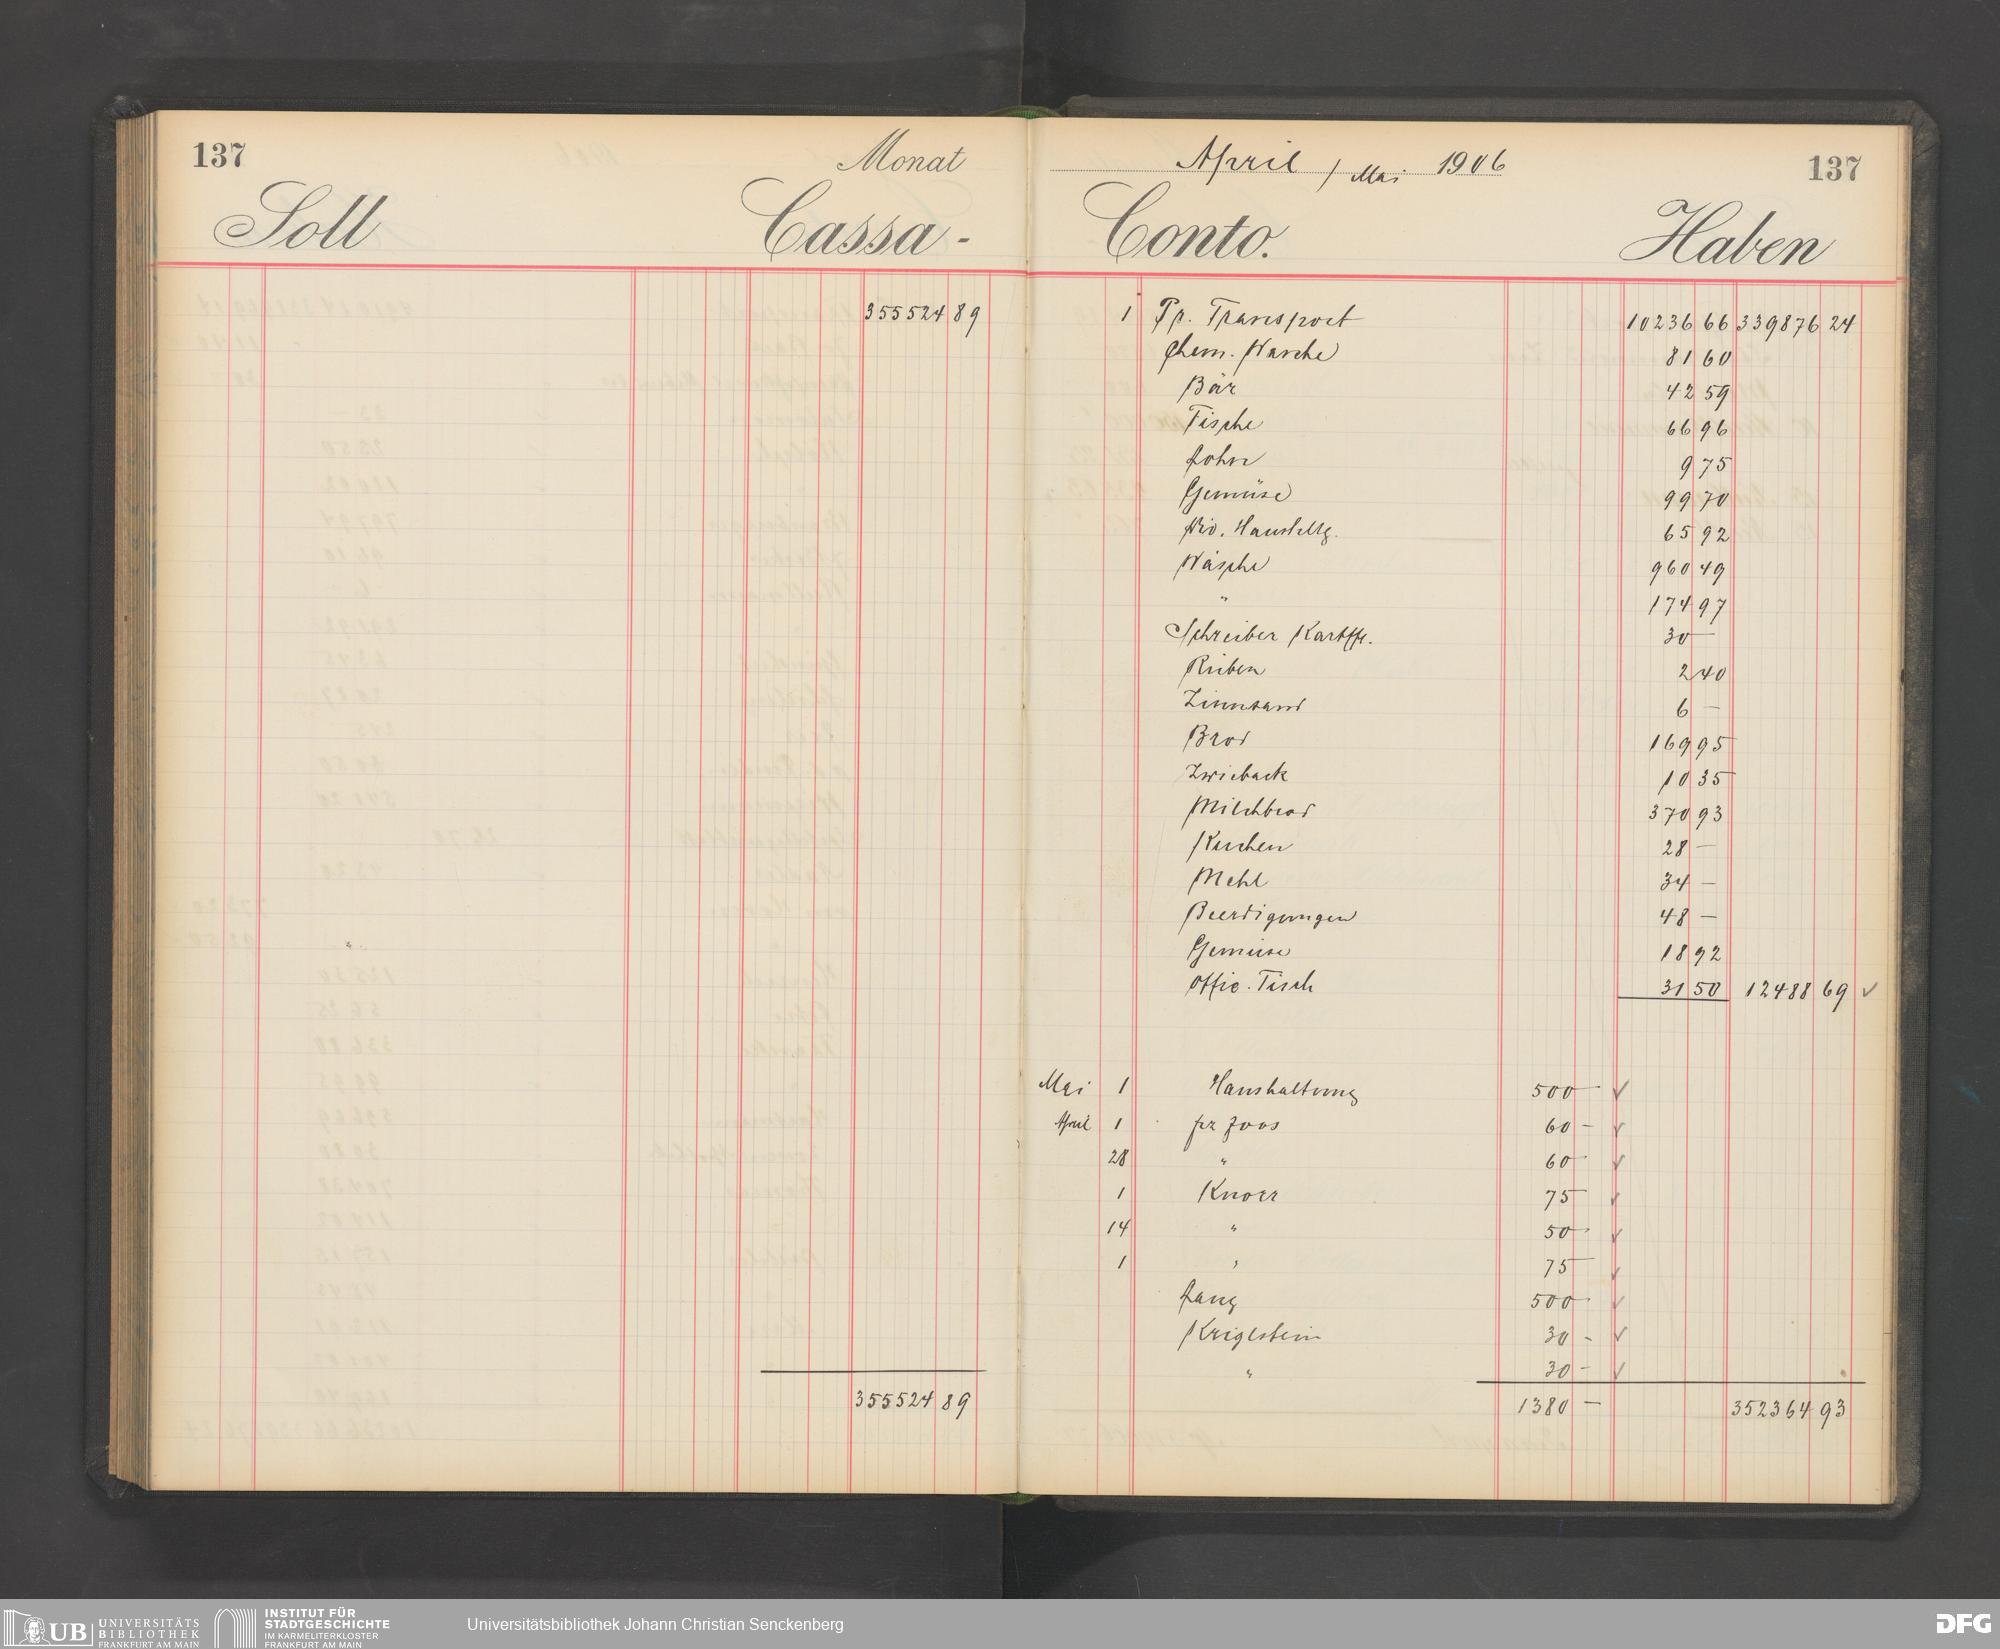 137
Monat April / Mai 1906
137
Soll
Cassa-
Conto.
Haben
355524 89
1 Pr. Transport 10236 66 339876 24
Chem. Wäsche 81 60
Bär 42 59
Fische 66 96
Lohn 9 75
Gemüse 99 70
Div. Haushltg. 65 92
Wäsche 960 49
" 174 97
Schreiber Kartffl. 30 —
Rüben 2 40
Zinnsand 6 —
Brod 169 95
Zwieback 10 35
Milchbrod 370 93
Kuchen 28 —
Mehl 34 —
Beerdigungen 48 —
Gemüse 18 92
Offic. Tisch 31 50 12488 69 ✓
Mai 1 Haushaltung 500 — ✓
April 1 pr Joos 60 — ✓
28 " 60 — ✓
1 Knorr 75 — ✓
14 " 50 — ✓
1 " 75 — ✓
Lang 500 — ✓
Kriglstein 30 — ✓
" 30 — ✓
355524 89
1380 — 352364 93
UB UNIVERSITÄTS
BIBLIOTHEK
FRANKFURT AM MAIN
INSTITUT FÜR
STADTGESCHICHTE
IM KARMELITERKLOSTER
FRANKFURT AM MAIN
Universitätsbibliothek Johann Christian Senckenberg
DFG